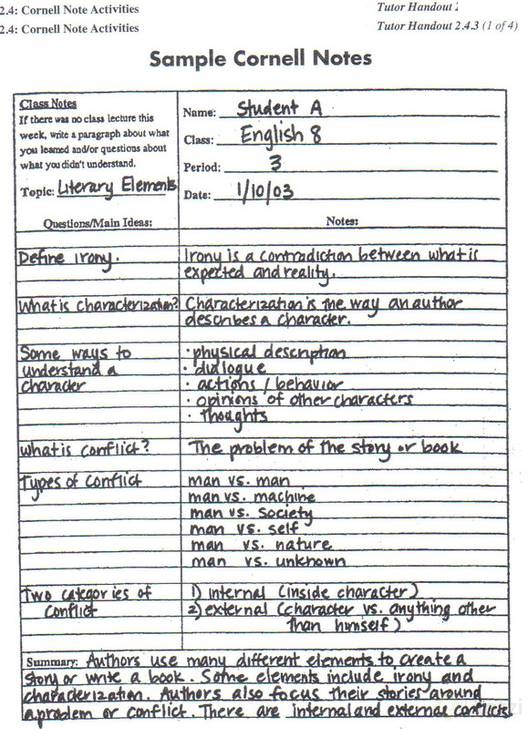 2.4: Cornell Note Activities
Tutor Handout 2
2.4: Cornell Note Activities
Tutor Handout 2.4.3 (1 of 4)
Sample Cornell Notes
Class Notes
If there was no class lecture this
week, write a paragraph about what
you learned and/or questions about
what you didn't understand.
Topic: Literary Elements
Name: Student A
Class: English 8
Period: 3
Date: 1/10/03
Questions/Main Ideas:
Notes:
Define irony.
Irony is a contradiction between what is
expected and reality.
What is characterization?
Characterization is the way an author
describes a character.
Some ways to
understand a
character
· physical description
· dialogue
· actions / behavior
· opinions of other characters
· Thoughts
What is conflict?
The problem of the story or book
Types of conflict
man vs. man
man vs. machine
man vs. society
man vs. self
man vs. nature
man vs. unknown
Two categories of
conflict
1) internal (inside character)
2) external (character vs. anything other
than himself)
Summary: Authors use many different elements to create a
story or write a book. Some elements include irony and
characterization. Authors also focus their stories around
a problem or conflict. There are internal and external conflicts.